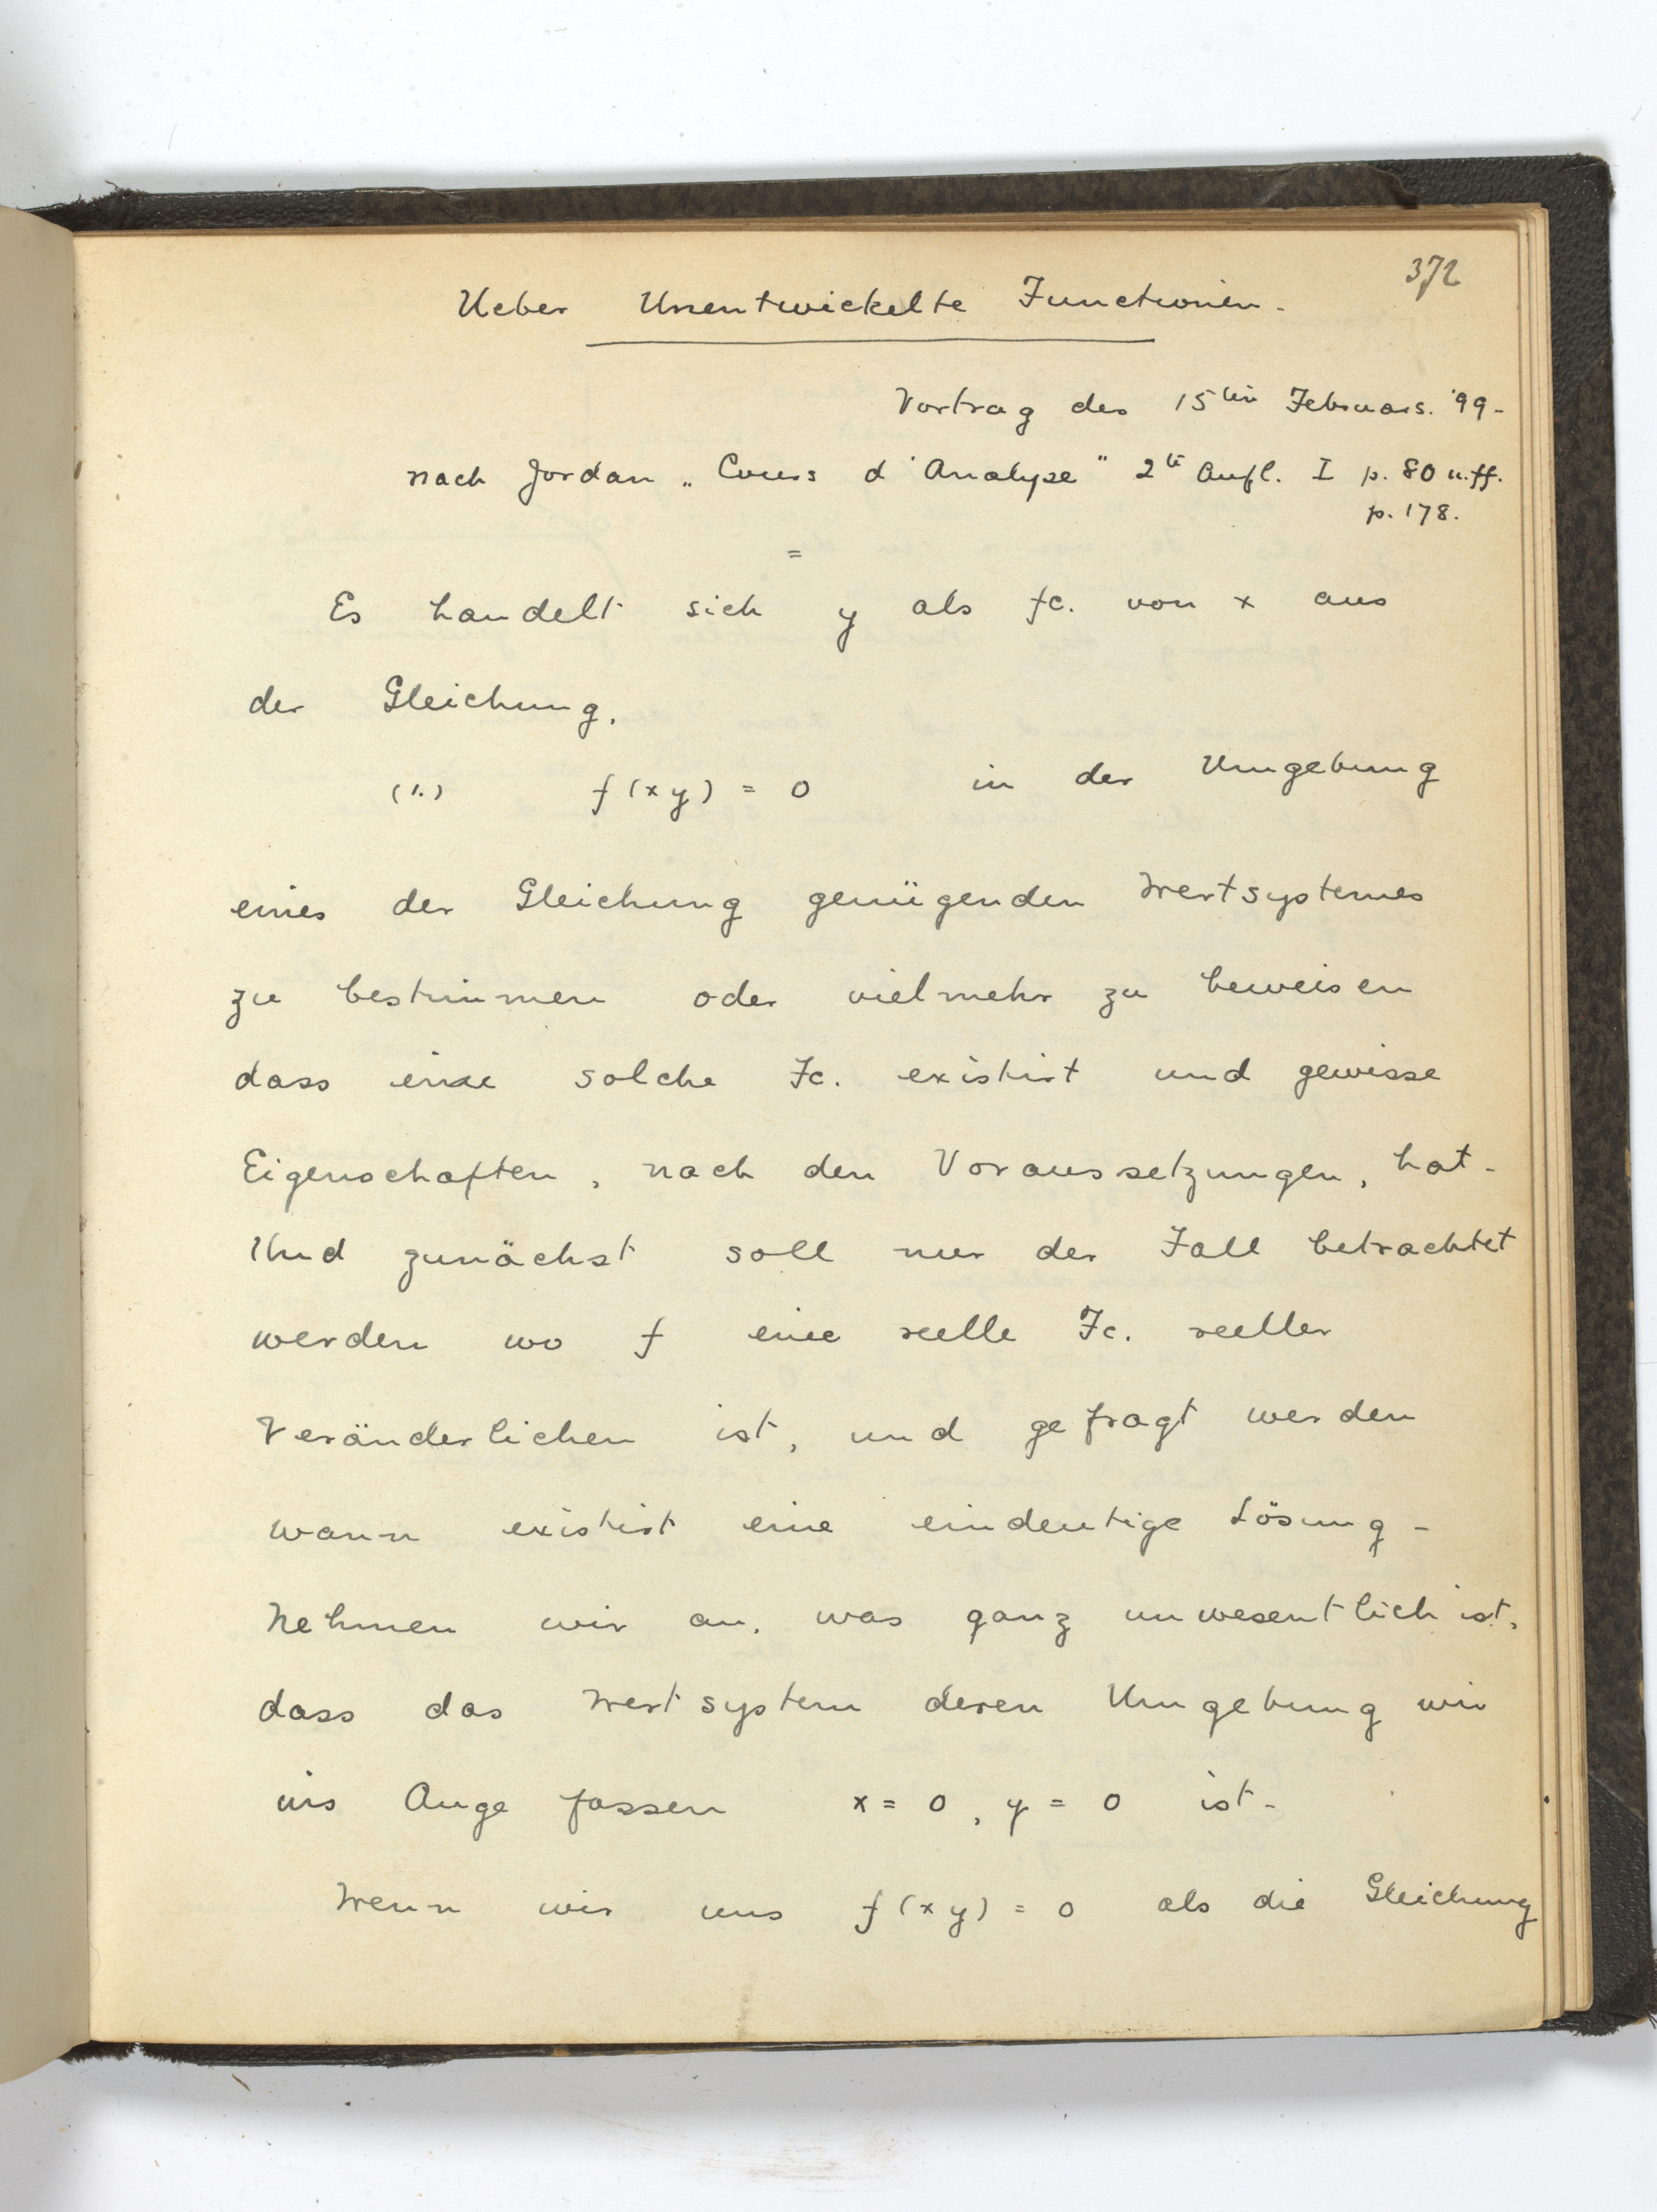 372
Ueber Unentwickelte Functionen.
Vortrag des 15ten Februars. '99.
nach Jordan „Cours d'Analyse" 2te Aufl. I p. 80 u. ff.
p. 178.
=
Es handelt sich y als fc. von x aus
der Gleichung.
(1.) f(xy) = 0 in der Umgebung
eines der Gleichung genügenden Wertsystemes
zu bestimmen oder vielmehr zu beweisen
dass eine solche Fc. existirt und gewisse
Eigenschaften, nach den Voraussetzungen, hat.
Und zunächst soll nur der Fall betrachtet
werden wo f eine reelle Fc. reeller
Veränderlichen ist, und gefragt werden
wann existirt eine eindeutige Lösung.
Nehmen wir an, was ganz unwesentlich ist,
dass das Wertsystem deren Umgebung wir
ins Auge fassen x = 0, y = 0 ist.
Wenn wir uns f(xy) = 0 als die Gleichung